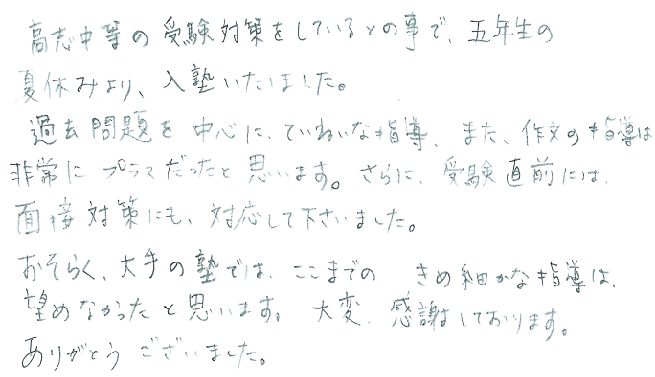 高志中等の受験対策をしているとの事で、五年生の
夏休みより、入塾いたしました。
過去問題を中心に、ていねいな指導、また、作文の指導は
非常にプラスだったと思います。さらに、受験直前には、
面接対策にも、対応して下さいました。
おそらく、大手の塾では、ここまでの きめ細かな指導は、
望めなかったと思います。大変、感謝しております。
ありがとうございました。